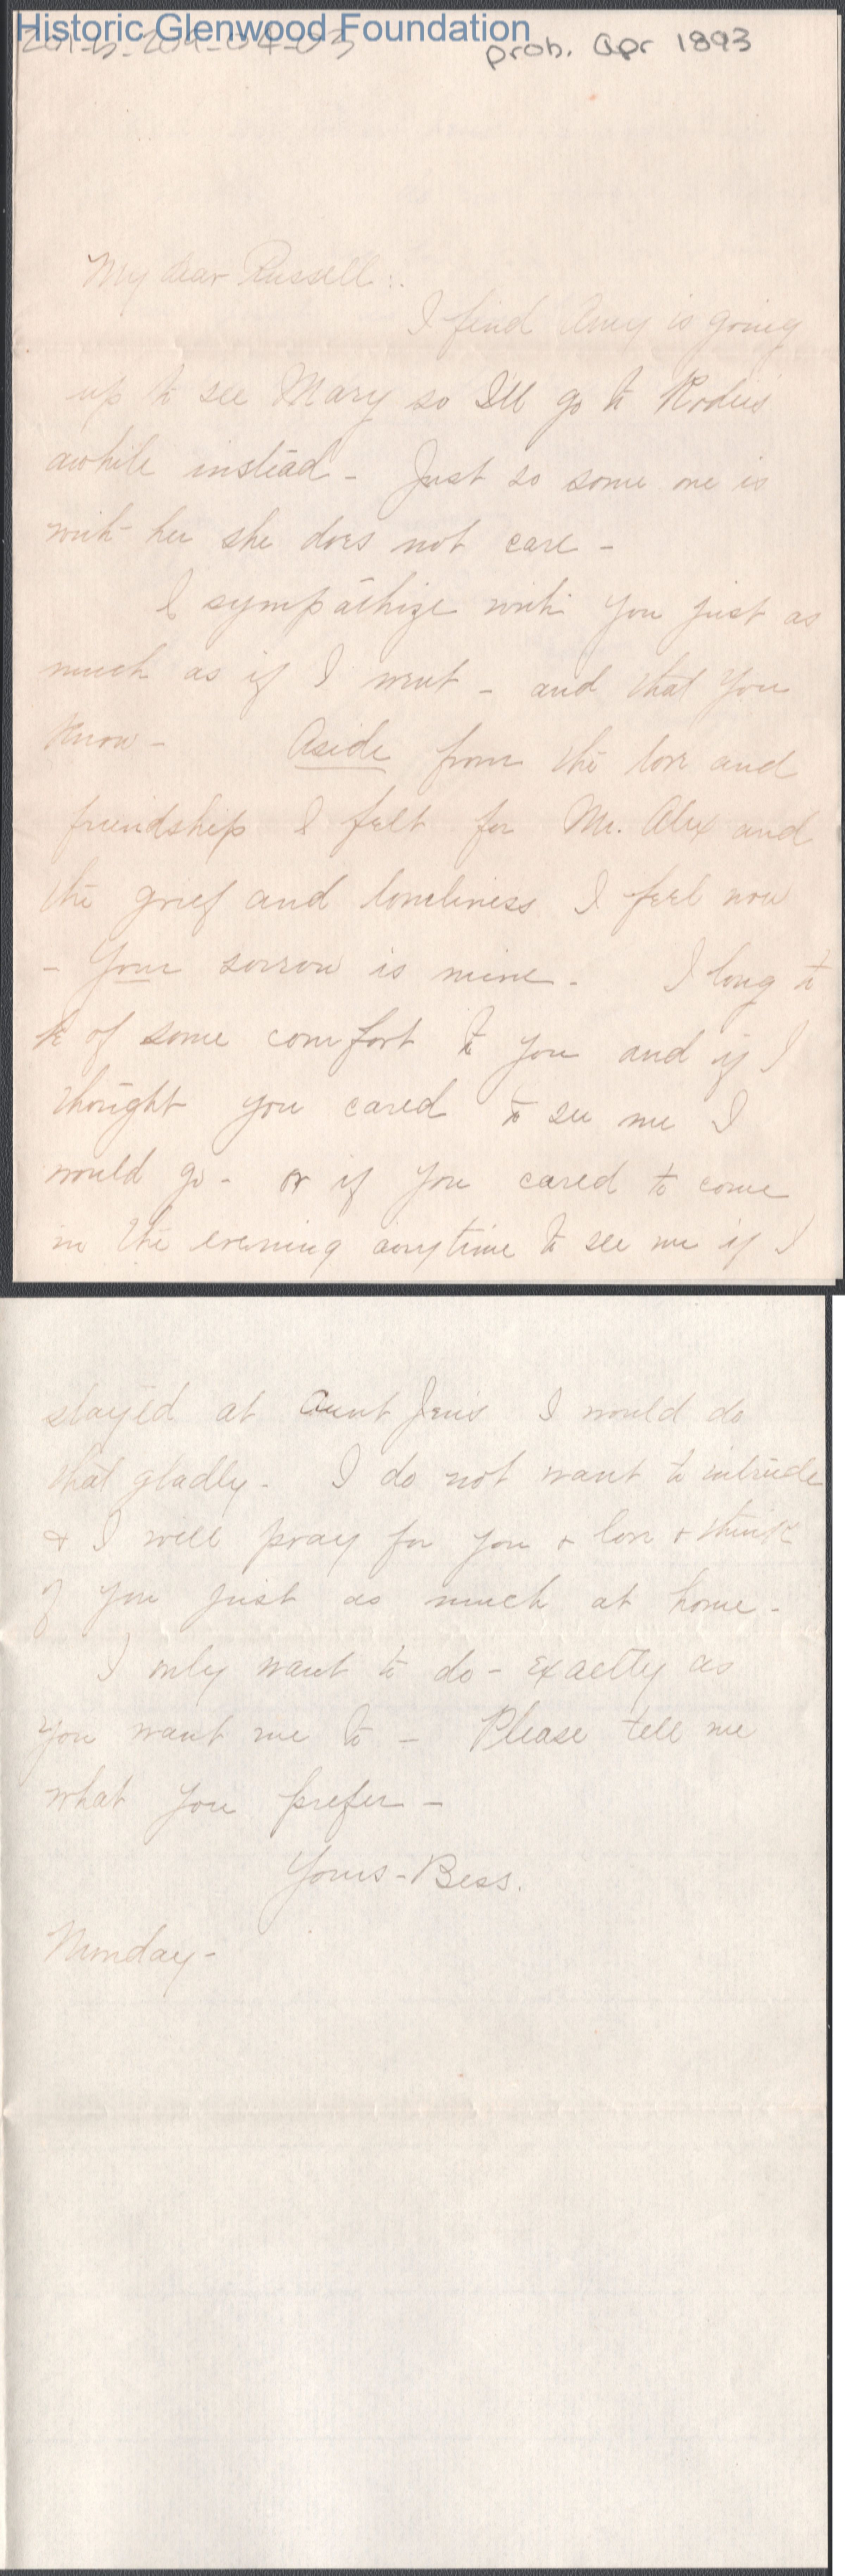 Historic Glenwood Foundation
prob. Apr 1893
My dear Russell:.
I find Amy is going
up to see Mary so I'll go to
awhile instead - Just so some one is
with her she does not care -
I sympathize with you just as
much as if I went - and that you
know - Aside from the love and
friendship I felt for Mr. Alex and
the grief and loneliness I feel now
- Your sorrow is mine. I long to
be of some comfort to you and if I
thought you cared to see me I
would go - or if you cared to come
in the evening anytime to see me if I
stayed at Aunt Jen's I would do
that gladly - I do not want to intrude
+ I will pray for you + love + think
of you just as much at home -
I only want to do - exactly as
you want me to - Please tell me
what you prefer -
Yours - Bess.
Monday -